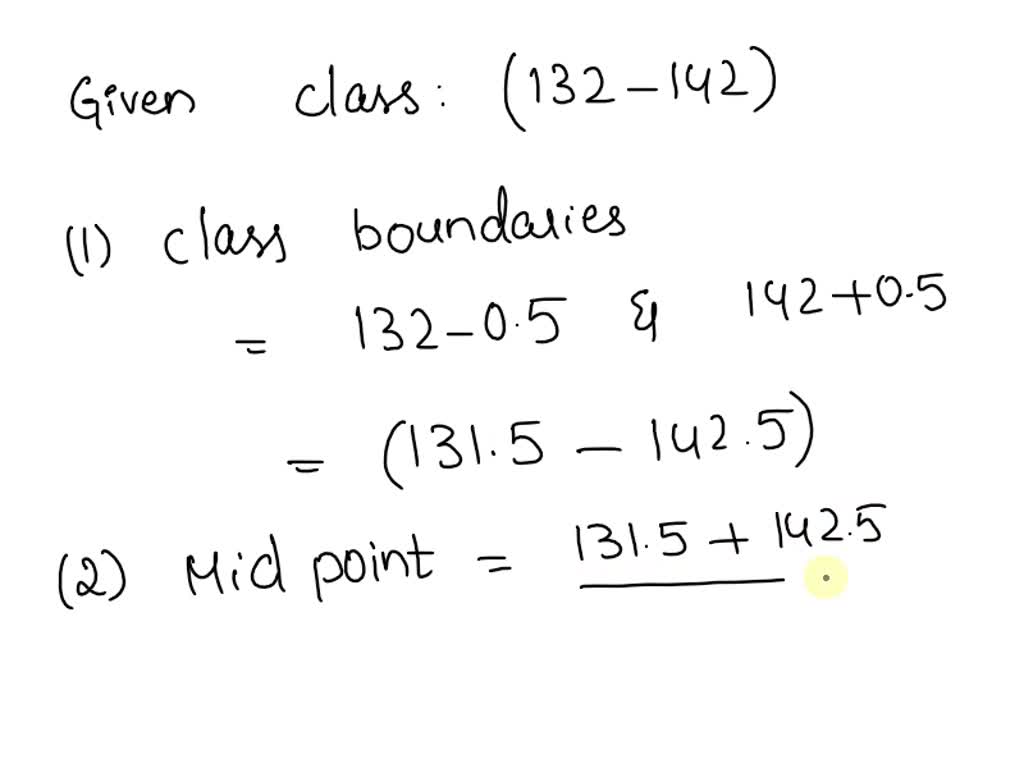 Given class: (132-142)
(1) class boundaries
= 132-0.5 & 142+0.5
= (131.5 - 142.5)
(2) Mid point = 131.5 + 142.5